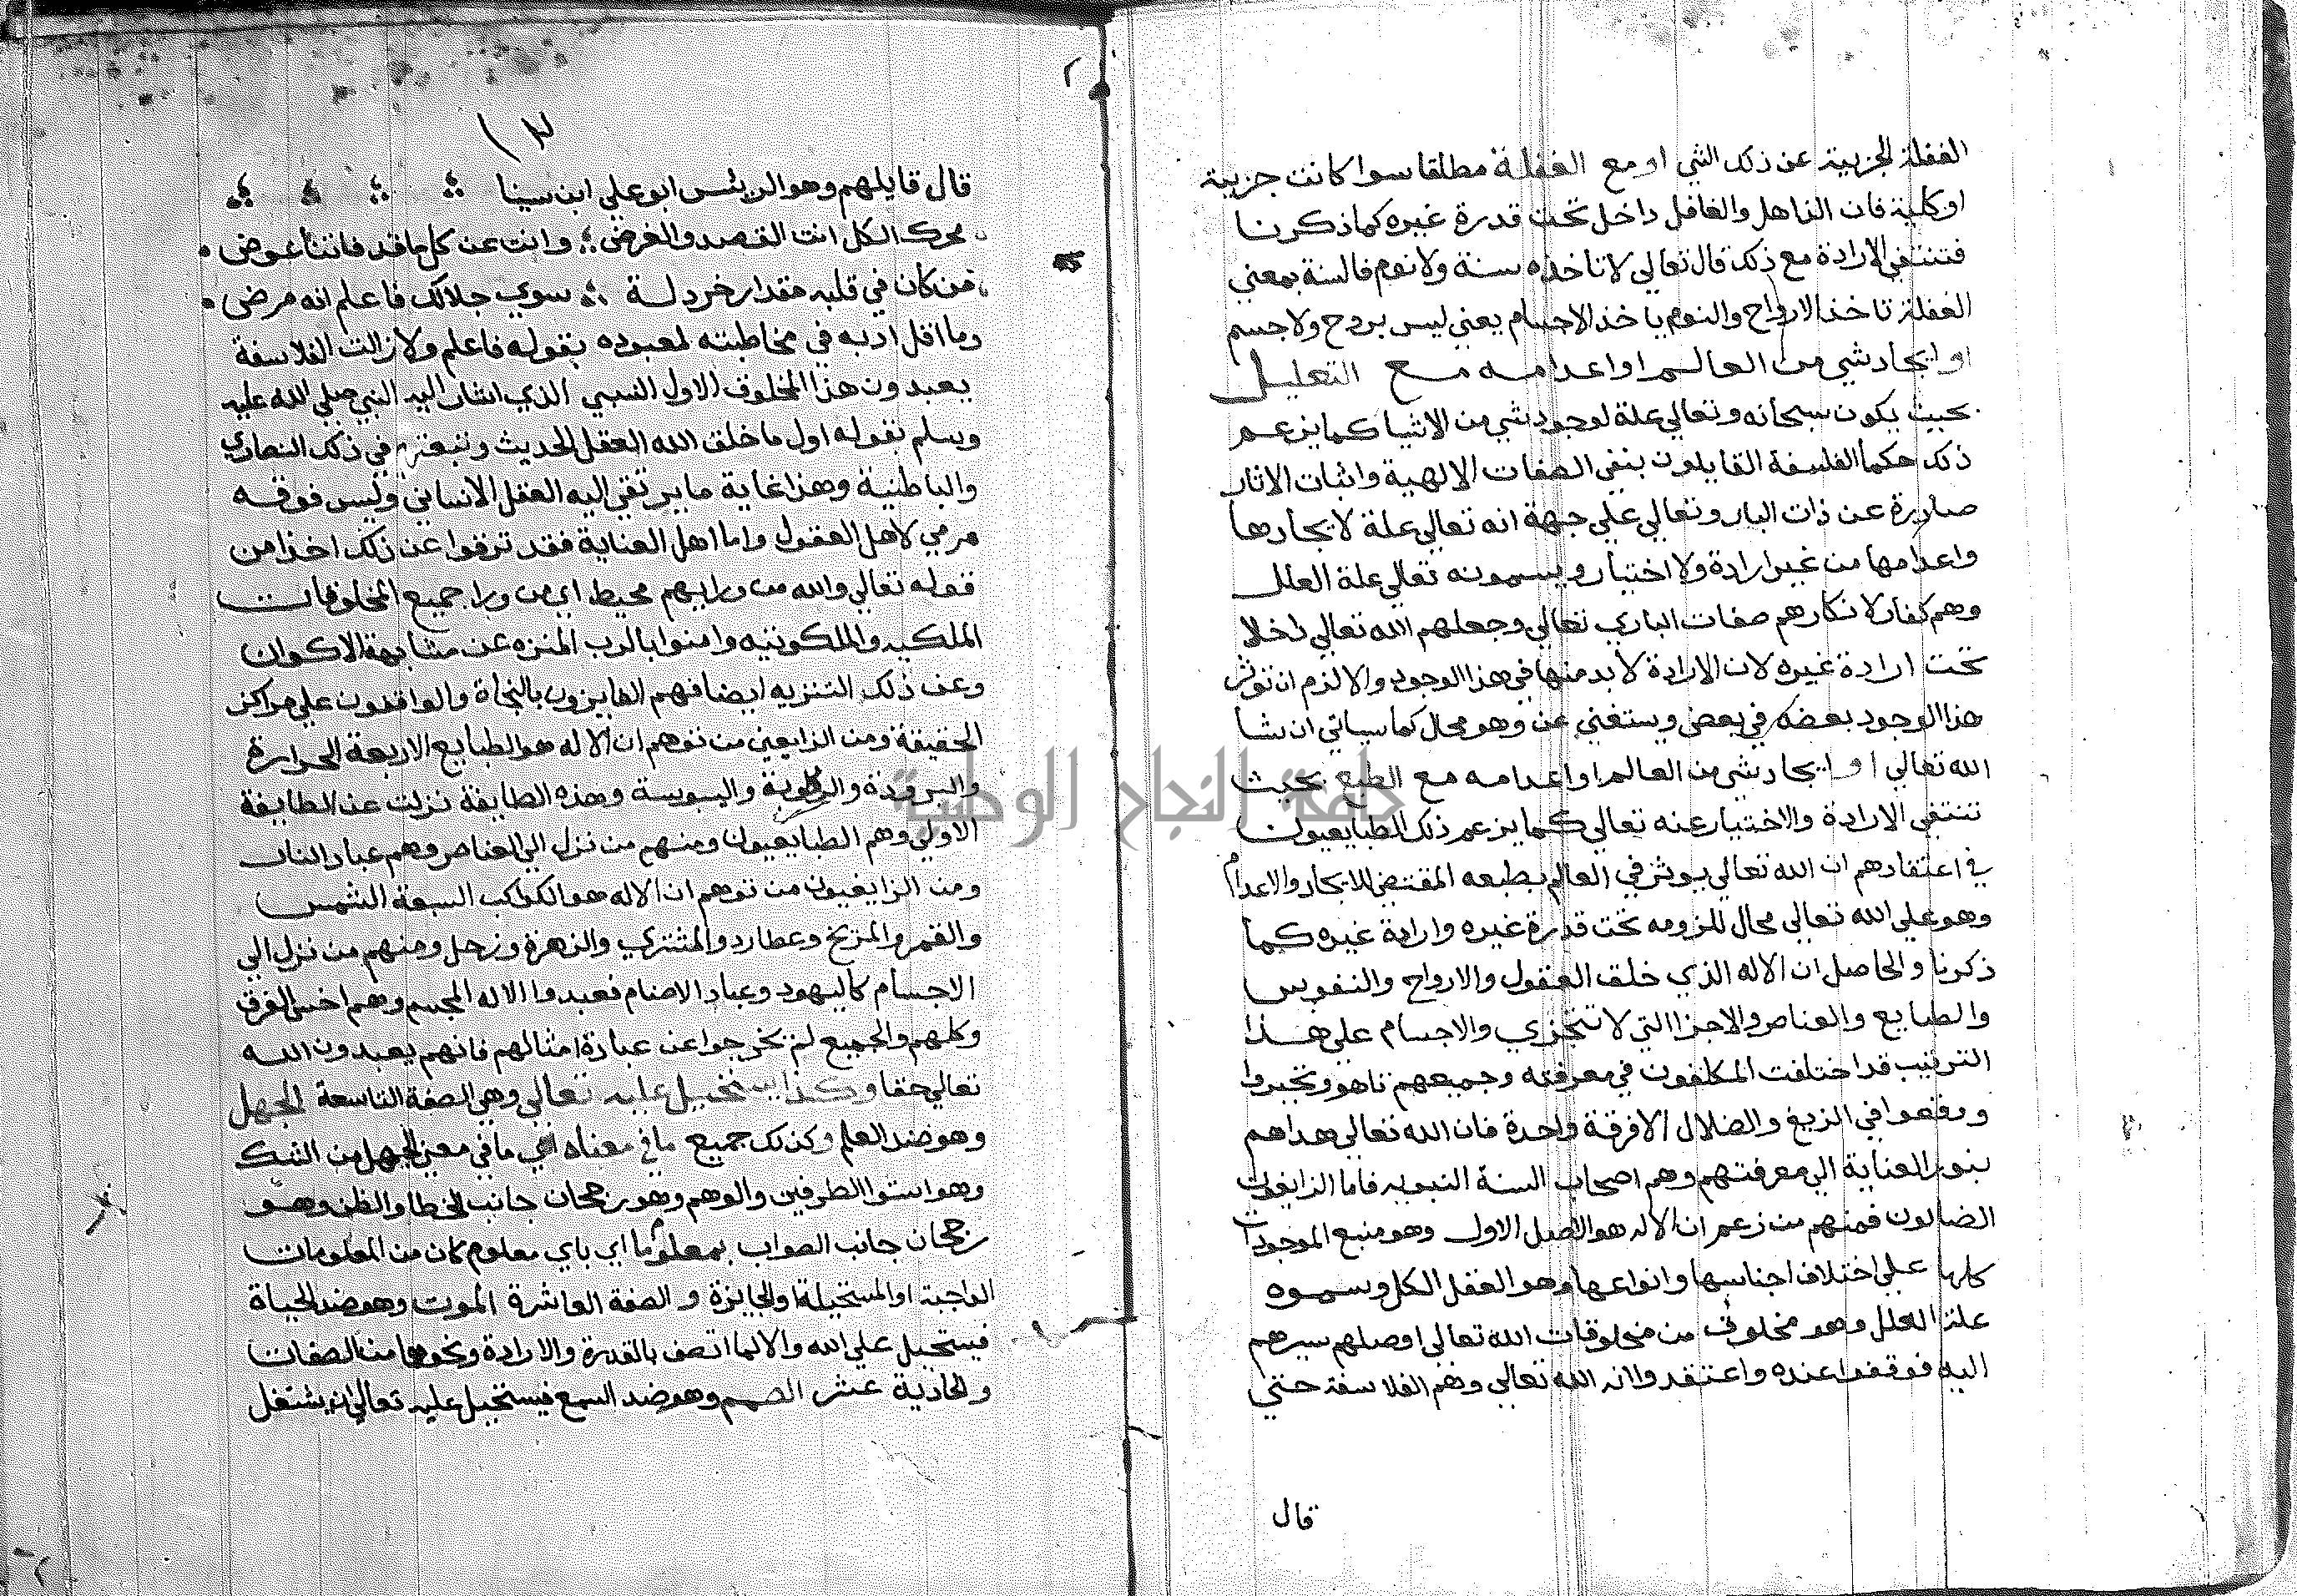 الغفلة الجزيية عن ذلك الشي او مع الغفلة مطلقا سوا كانت جزيية
او كلية فان الذاهل والغافل داخل تحت قدرة غيره كما ذكرنا
فتنتفي الارادة مع ذلك قال تعالي لا تاخذه سنة ولا نوم فالسنة بمعني
الغفلة تاخذ الارواح والنوم ياخذ الاجسام يعني ليس بروح ولا جسم
او ايجاد شي من العالم او اعدامه مع التعليل
بحيث يكون سبحانه وتعالي علة لوجود شي من الاشيا كما يزعم
ذلك حكما الفلسفة القايلون بنفي الصفات الالهية واثبات الاثار
صادرة عن ذات الباري وتعالي علي جهة انه تعالي علة لايجادها
واعدامها من غير ارادة ولا اختيار ويسمونه تعالي علة العلل
وهم كفار لانكارهم صفات الباري تعالي وجعلهم الله تعالي داخلا
تحت ارادة غيره لان الارادة لابد منها في هذا الوجود والا لزم ان توثر
هذا الوجود بعضه في بعض ويستغني عن وهو محال كما سياتي ان شا
الله تعالي او ايجاد شي من العالم او اعدامه مع الطبع بحيث
تنتفي الارادة والاختيار عنه تعالي كما يزعم ذلك الطبايعيون
في اعتقادهم ان الله تعالي يوثر في العالم بطبعه المقتضي للايجاد والاعدام
وهو علي الله تعالي محال للزومه تحت قدرة غيره وارادة غيره كما
ذكرنا والحاصل ان الاله الذي خلق العقول والارواح والنفوس
والطبايع والعناصر والاجزا التي لا تتجزي والاجسام علي هذا
الترتيب قد اختلفت المكلفون في معرفته وجميعهم تاهو وتحيروا
ووقعوا في الزيغ والضلال الا فرقة واحدة فان الله تعالي هداهم
بنور العناية الي معرفتهم وهم اصحاب السنة النبويه فاما الزايغون
الضالون فمنهم من زعم ان الاله هو الاصل الاول وهو منبع الموجودات
كلها علي اختلاف اجناسها وانواعها وهو العقل الكل وسموه
علة العلل وهو مخلوق من مخلوقات الله تعالي اوصلهم سيرهم
اليه فوقفوا عنده واعتقدوا انه الله تعالي وهم الفلاسفة حتي
قال
١٣
قال قايلهم وهو الريئس ابو علي ابن سينا
محرك الكل انت القصد والغرض وانت عن كل ما قد فاتنا عوض
من كان في قلبه مقدار خردلة سوي جلالك فاعلم انه مرض
وما اقل ادبه في مخاطبته لمعبوده بقوله فاعلم ولا زالت الفلاسفة
يعبدون هذا المخلوف الاول النسبي الذي اشار اليه النبي صلي الله عليه
وسلم بقوله اول ما خلق الله العقل الحديث وتبعتهم في ذلك النصاري
والباطنية وهذا غاية ما يرتقي اليه العقل الانساني وليس فوقه
مرمي لاهل العقول واما اهل العناية فقد ترقوا عن ذلك اخذا من
قوله تعالي والله من ورايهم محيط اي من ورا جميع المخلوقات
الملكيه والملكوتيه وامنوا بالرب المنزه عن مشابهة الاكوان
وعن ذلك التنزيه ايضا فهم الفايزون بالنجاة والواقفون علي مراكز
الحقيقة ومن الزايغين من توهم ان الاله هو الطبايع الاربعة الحرارة
والبرودة والرطوبة واليبوسة وهذه الطايفة نزلت عن الطايفة
الاولي وهم الطبايعيون ومنهم من نزل الي العناصر وهم عباد النار
ومن الزايغيون من توهم ان الاله هو الكواكب السبعة الشمس
والقمر والمريخ وعطارد والمشتري والزهرة وزحل ومنهم من نزل الي
الاجسام كاليهود وعباد الاصنام فعبدوا الاله المجسم وهم اخس الفرق
وكلهم والجميع لم يخرجوا عن عبادة امثالهم فانهم يعبدون الله
تعالي حقا وكذا يستحيل عليه تعالي وهي الصفة التاسعة الجهل
وهو ضد العلم وكذلك جميع ما في معناه اي ما في معني الجهل من الشك
وهو استوا الطرفين والوهم وهو رجحان جانب الخطا والظن وهو
رجحان جانب الصواب بمعلوم ما اي باي معلوم كان من المعلومات
الواجبة او المستحيلة او الجايزة و الصفة العاشرة الموت وهو ضد الحياة
فيستحيل علي الله والا لما اتصف بالقدرة والارادة ونحوها من الصفات
والحادية عشر الصمم وهو ضد السمع فيستحيل عليه تعالي ان يشتغل
جامعة النجاح الوطنية